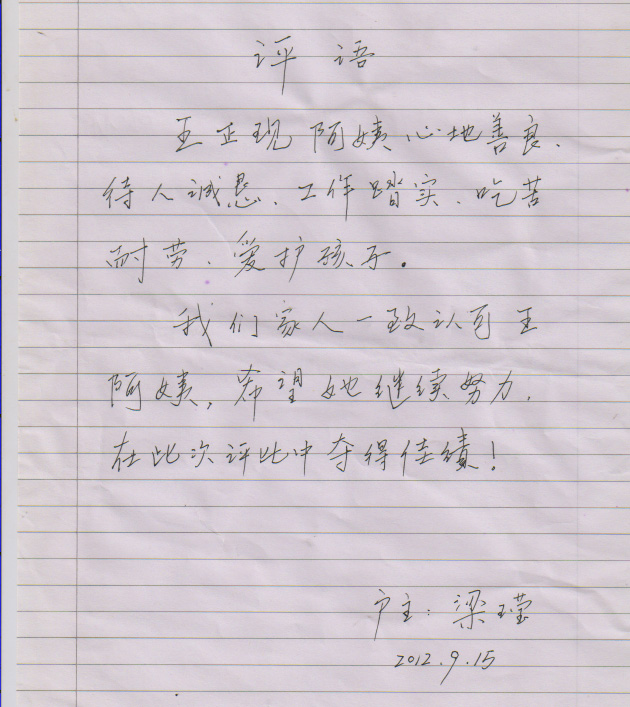 评语
王正现阿姨心地善良、
待人诚恳、工作踏实、吃苦
耐劳、爱护孩子。
我们家人一致认可王
阿姨,希望她继续努力,
在此次评比中夺得佳绩!
户主:梁莹
2012.9.15